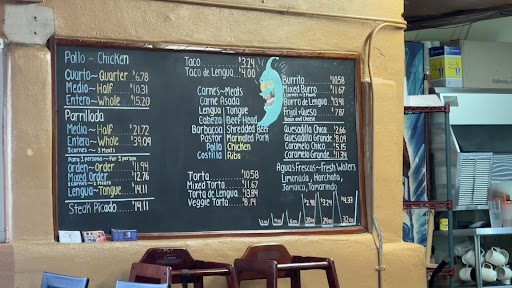 Pollo - Chicken
Cuarto~Quarter $6.78
Medio~Half $10.31
Entero~Whole $15.20
Parrillada
Medio~Half $21.72
Entero~Whole $39.04
3 carnes~3 Meats
Para 1 persona~For 1 person
Orden~Order $11.94
Mixed Order $12.76
2 carnes~2 Meats
Lengua~Tongue $14.11
Steak Picado $14.11
Taco $3.24
Taco de Lengua $4.00
Carnes~Meats
Carne Asada
Lengua Tongue
Cabeza Beef Head
Barbacoa Shredded Beef
Pastor Marinated Pork
Pollo Chicken
Costilla Ribs
Torta $10.58
Mixed Torta $11.67
Torta de Lengua $13.84
Veggie Torta $8.14
Burrito $10.58
Mixed Burro $11.67
2 carnes~2 Meats
Burro de Lengua $13.41
Frijol y Queso $7.87
Bean and Cheese
Quesadilla Chica $2.66
Quesadilla Grande $8.09
Caramelo Chico $5.15
Caramelo Grande $11.34
Aguas Frescas~Fresh Waters
Limonada, Horchata,
Jamaica, Tamarindo
$2.98 $3.24 $4.33
20oz 24oz 32oz